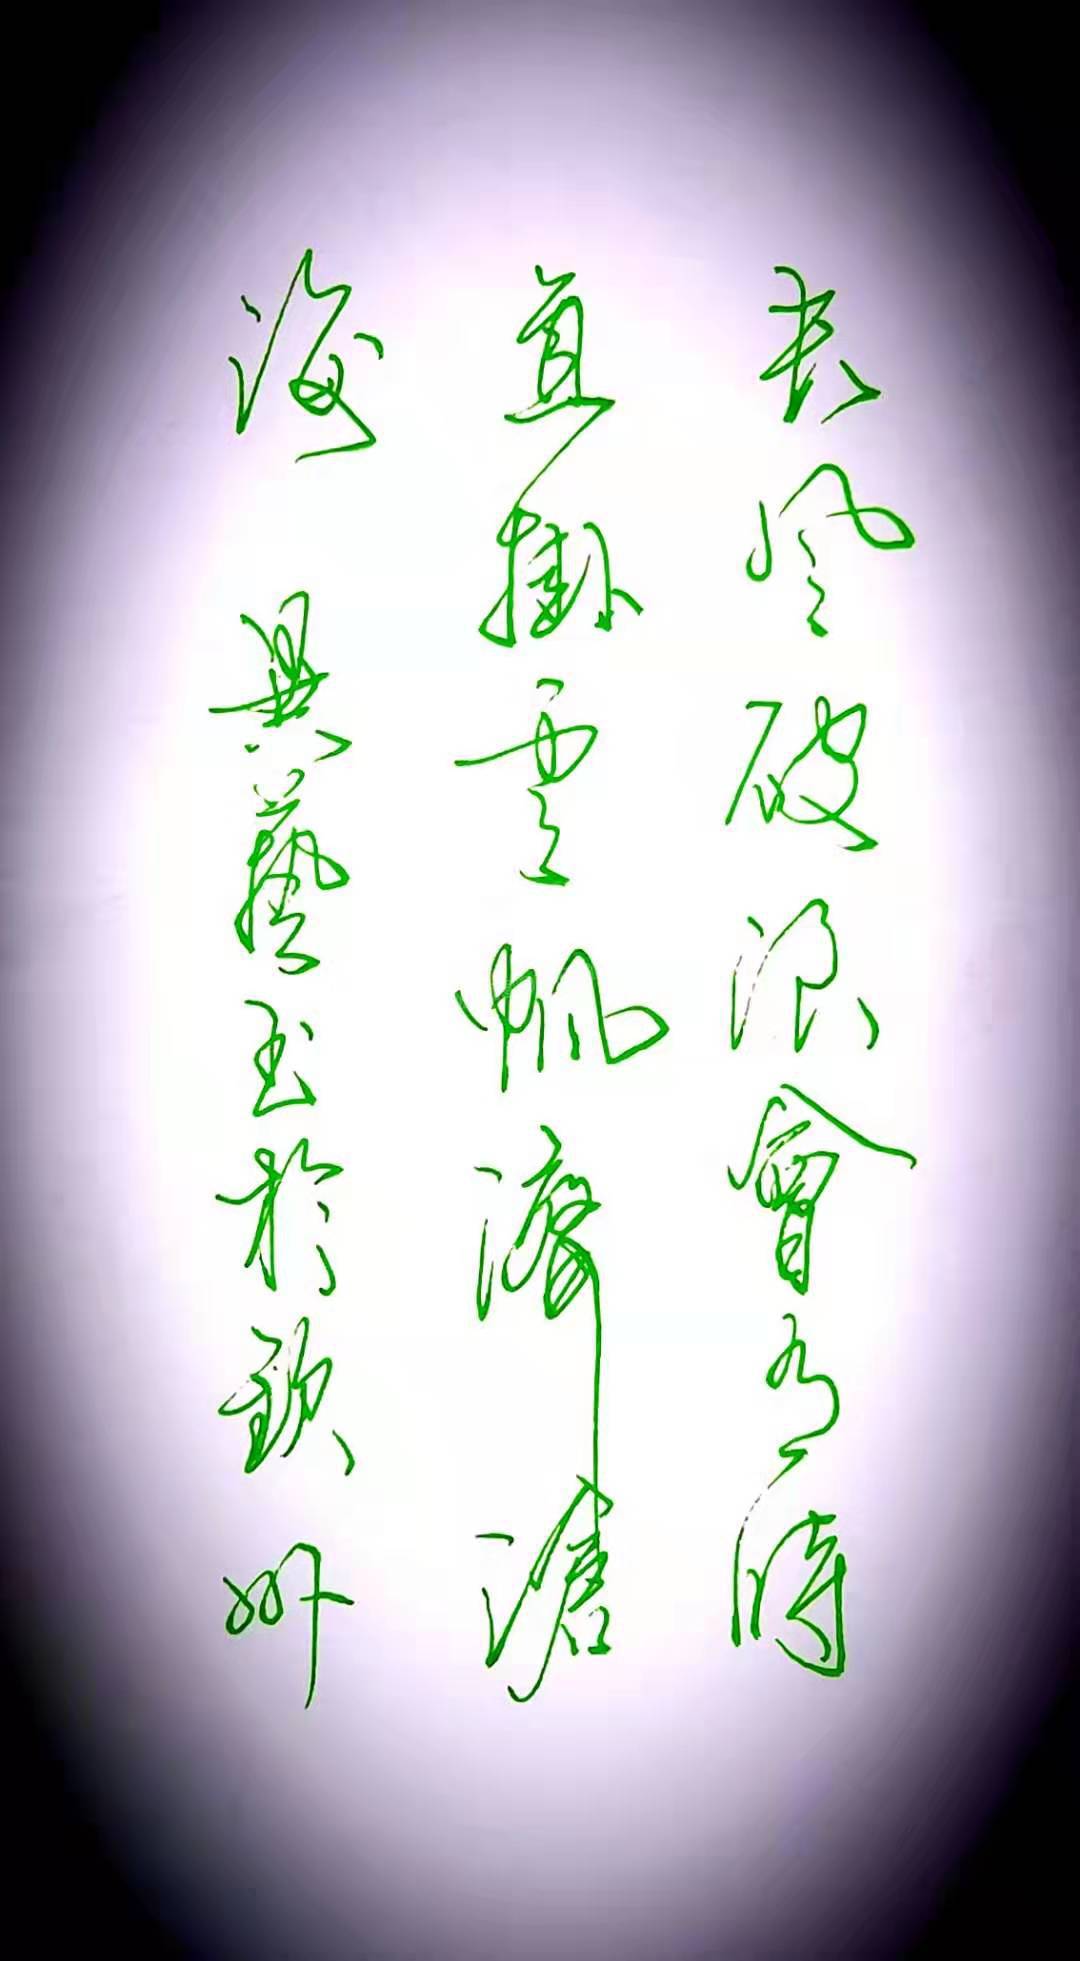 長風破浪會有時
直掛雲帆濟滄
海 異藝書於欽州